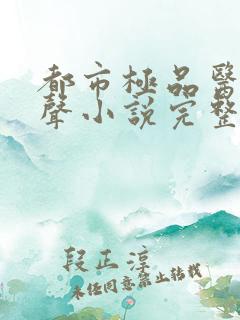 都市極品醫
聲小說完整
段正淳
未经同意禁止转载